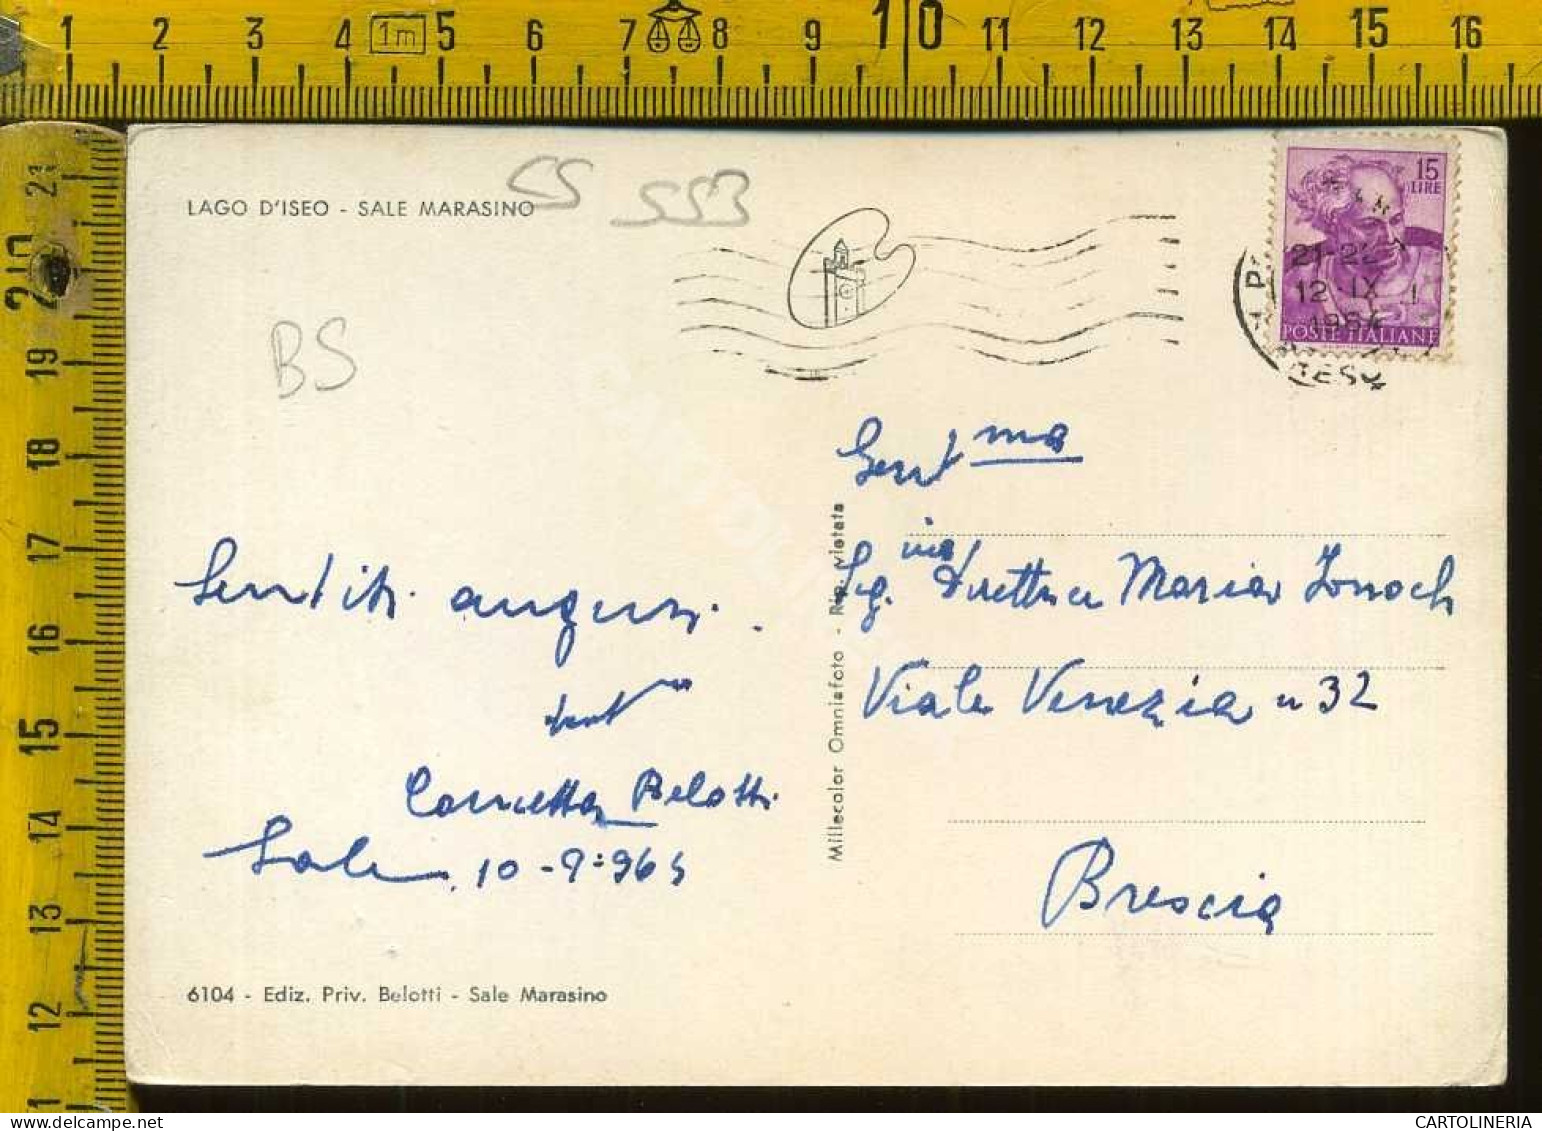 1 2 3 4 1m 5 6 7 8 9 10 11 12 13 14 15 16
21
20
19
18
17
16
15
14
13
12
LAGO D'ISEO - SALE MARASINO
SS 553
BS
15
LIRE
21-22
12 IX
1964
POSTE ITALIANE
Gent ma
Sig. ina Direttrice Maria
Viale Venezia n 32
Brescia
Sentiti auguri.
Belotti
Sale, 10-9-964
Millecolor Omniafoto - Rip. Vietata
6104 - Ediz. Priv. Belotti - Sale Marasino
www.delcampe.net
CARTOLINERIA